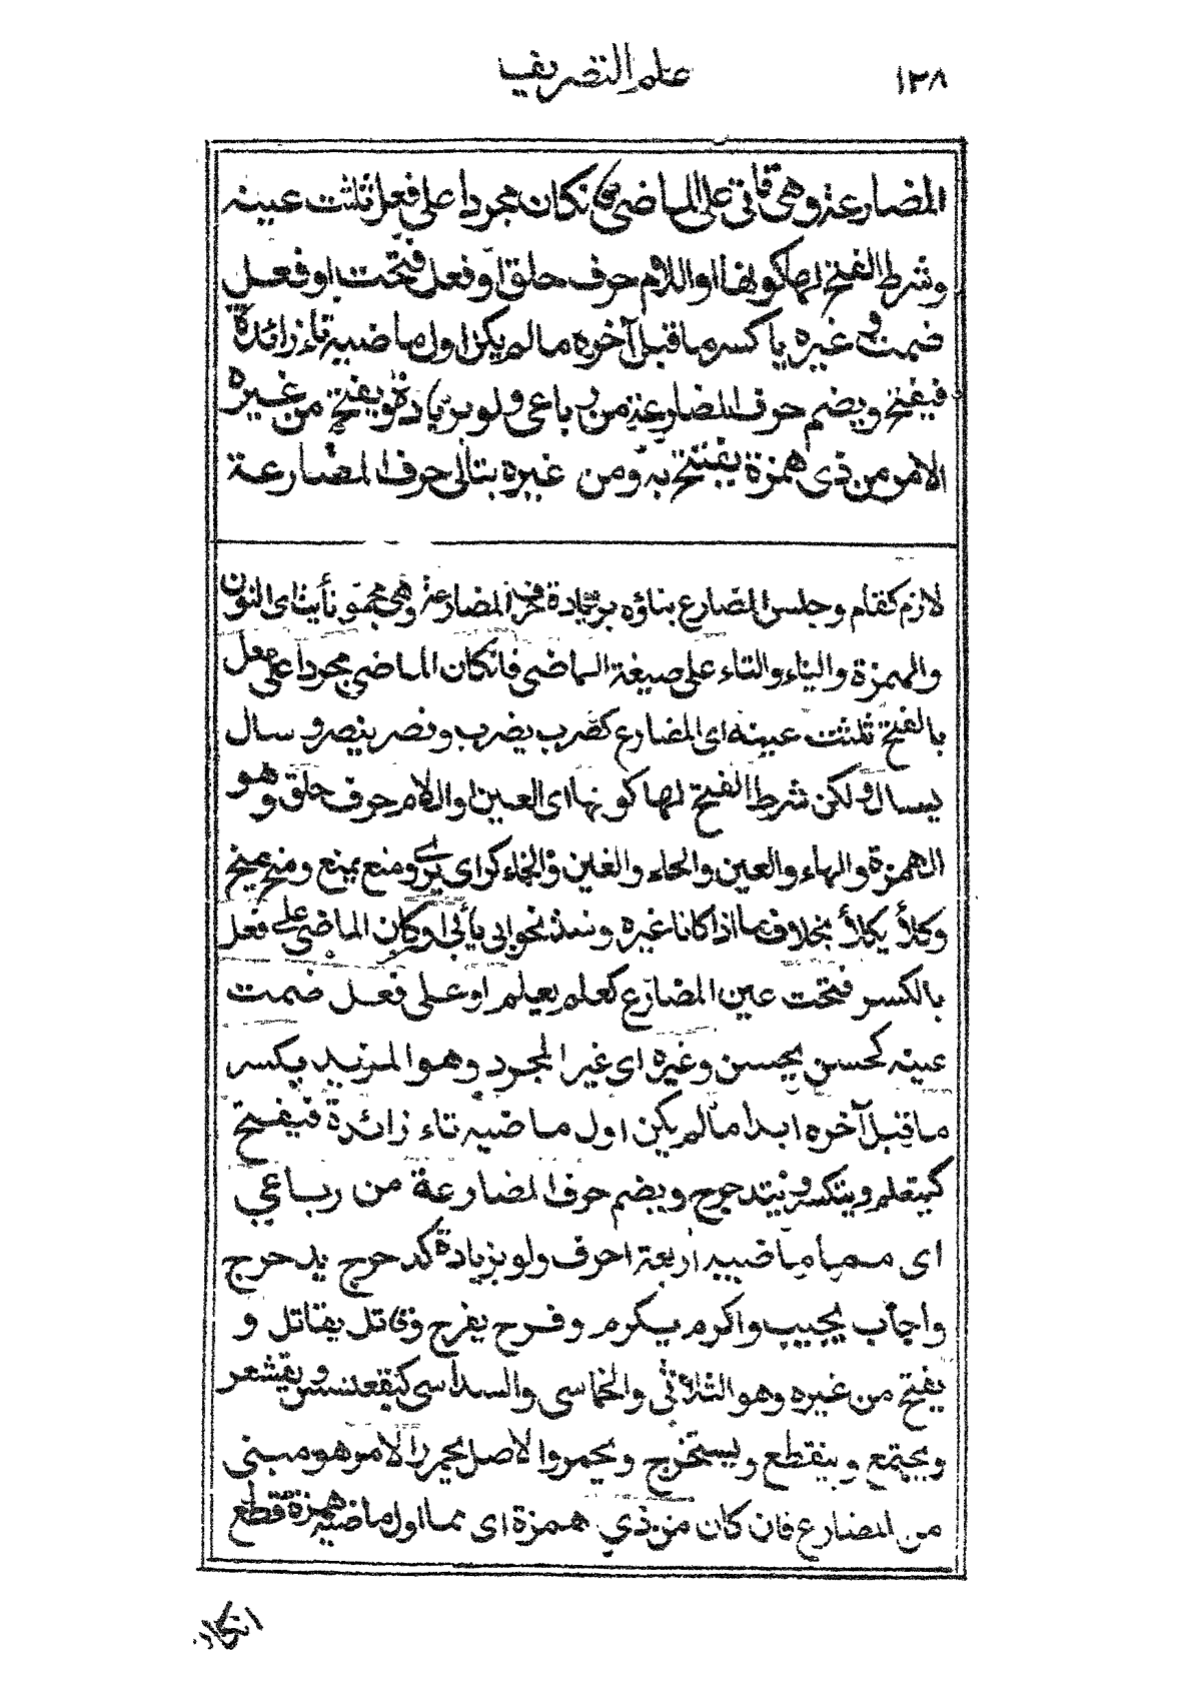 ١٣٨
علم التصريف
المضارعة وهى فاتى على الماضى فان كان مجردا على فعل ثلثت عينه
وشرط الفتح لها كونها او اللام حرف حلق او فعل فتحت او فعل
ضمت وغيره يا كسر ما قبل آخره ما لم يكن اول ماضيه تاء زائدة
فيفتح ويضم حرف المضارعة من رباعى ولو بزيادة ويفتح من غيره
الامر من ذى همزة يفتتح به ومن غيره بتالى حرف المضارعة
لازم كقام وجلس المضارع بناؤه بزيادة حرف المضارعة وهى مجمو نأيت اى النون
والهمزة والياء والتاء على صيغة الماضى فان كان الماضى مجردا على فعل
بالفتح ثلثت عينه اى المضارع كضرب يضرب ونصر ينصر و سال
يسال ولكن شرط الفتح لها كونها اى العين او اللام حرف حلق وهو
الهمزة والهاء والعين والحاء والغين والخاء كراى يرى ومنع يمنع ومنح يمنح
وكلأ يكلأ بخلاف ما اذا كانا غيره وشذ نحو ابى يأبى او كان الماضى على فعل
بالكسر فتحت عين المضارع كعلم يعلم او على فعل ضمت
عينه كحسن يحسن وغيره اى غير المجرد وهو المزيد يكسر
ما قبل آخره ابدا ما لم يكن اول ماضيه تاء زائدة فيفتح
كيتعلم ويتكسر ويتدحرج ويضم حرف المضارعة من رباعي
اى مما ماضيه اربعة احرف ولو بزيادة كدحرج يدحرج
واجاب يجيب واكرم يكرم وفرح يفرح وقاتل يقاتل و
يفتح من غيره وهو الثلاثي والخماسى والسداسى كيقعنسس ويقشعر
ويجتمع وينقطع ويستخرج ويحمر والاصل يحمرر الامر هو مبنى
من المضارع فان كان من ذي همزة اى مما اول ماضيه همزة قطع